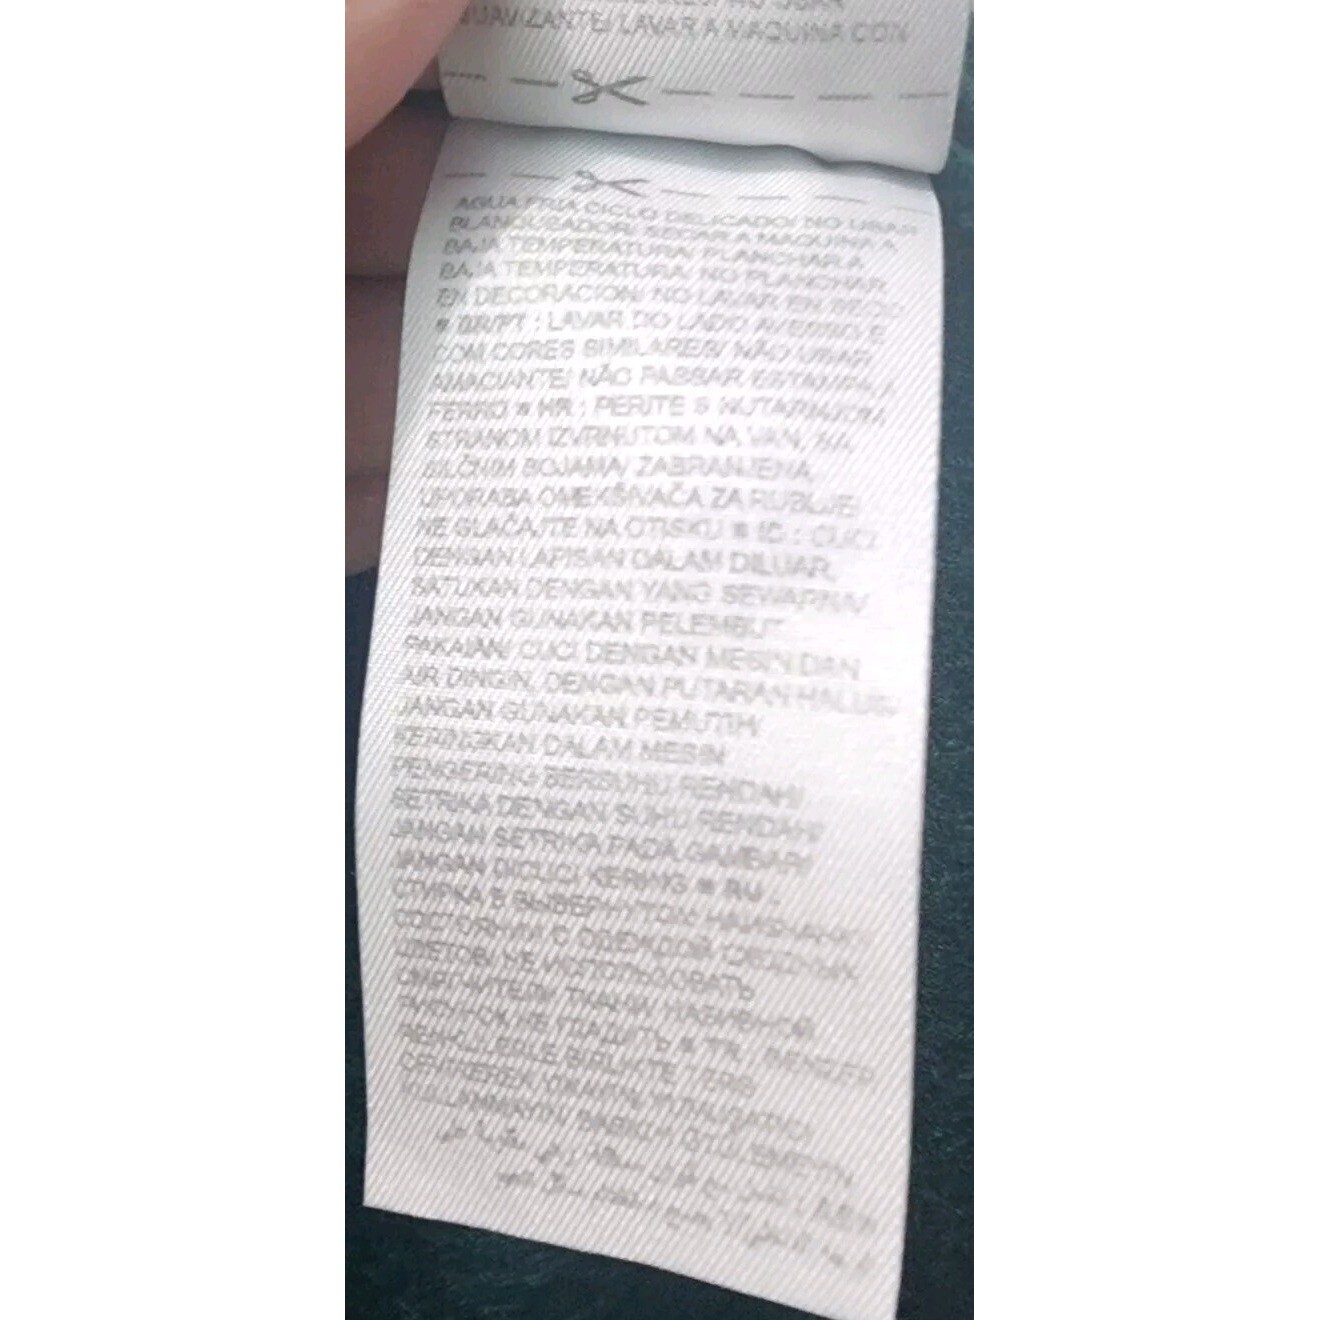 SUAVIZANTE/ LAVAR A MAQUINA CON
AGUA FRIA CICLO DELICADO/ NO USAR
BLANQUEADOR/ SECAR A MAQUINA A
BAJA TEMPERATURA/ PLANCHAR A
BAJA TEMPERATURA/ NO PLANCHAR
EN DECORACION/ NO LAVAR EN SECO
■ BR/PT : LAVAR DO LADO AVESSO E
COM CORES SIMILARES/ NÃO USAR
AMACIANTE/ NÃO PASSAR ESTAMPA A
FERRO ■ HR : PERITE S NUTARNJOM
STRANOM IZVRNUTOM NA VAN, SA
SLIČNIM BOJAMA/ ZABRANJENA
UPORABA OMEKŠIVAČA ZA RUBLJE/
NE GLAČAJTE NA OTISKU ■ ID : CUCI
DENGAN LAPISAN DALAM DILUAR,
SATUKAN DENGAN YANG SEWARNA/
JANGAN GUNAKAN PELEMBUT
PAKAIAN/ CUCI DENGAN MESIN DAN
AIR DINGIN, DENGAN PUTARAN HALUS/
JANGAN GUNAKAN PEMUTIH/
KERINGKAN DALAM MESIN
PENGERING BERSUHU RENDAH/
SETRIKA DENGAN SUHU RENDAH/
JANGAN SETRIKA PADA GAMBAR/
JANGAN DICUCI KERING ■ RU :
СТИРКА В ВЫВЕРНУТОМ НАИЗНАНКУ
СОСТОЯНИИ С ОДЕЖДОЙ СХОДНЫХ
ЦВЕТОВ/ НЕ ИСПОЛЬЗОВАТЬ
СМЯГЧИТЕЛИ ТКАНИ/ НАБИВНОЙ
РИСУНОК НЕ ГЛАДИТЬ ■ TR : BENZER
RENKLERLE BIRLIKTE TERS
YIKAYIN/ YUMUŞATICI
KULLANMAYIN/